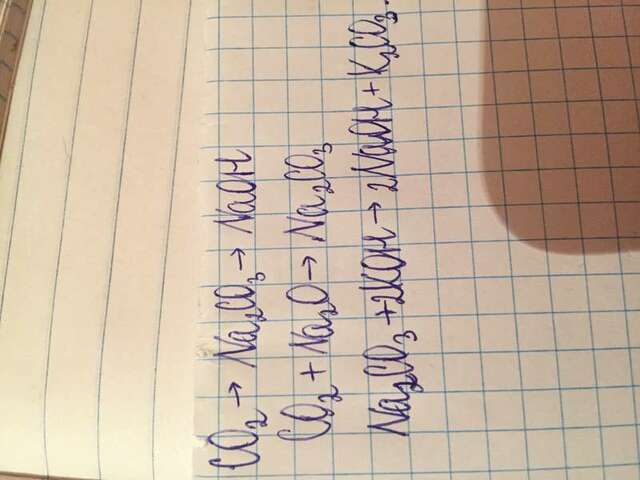 CO₂ → Na₂CO₃ → NaOH
CO₂ + Na₂O → Na₂CO₃
Na₂CO₃ + 2KOH → 2NaOH + K₂CO₃.